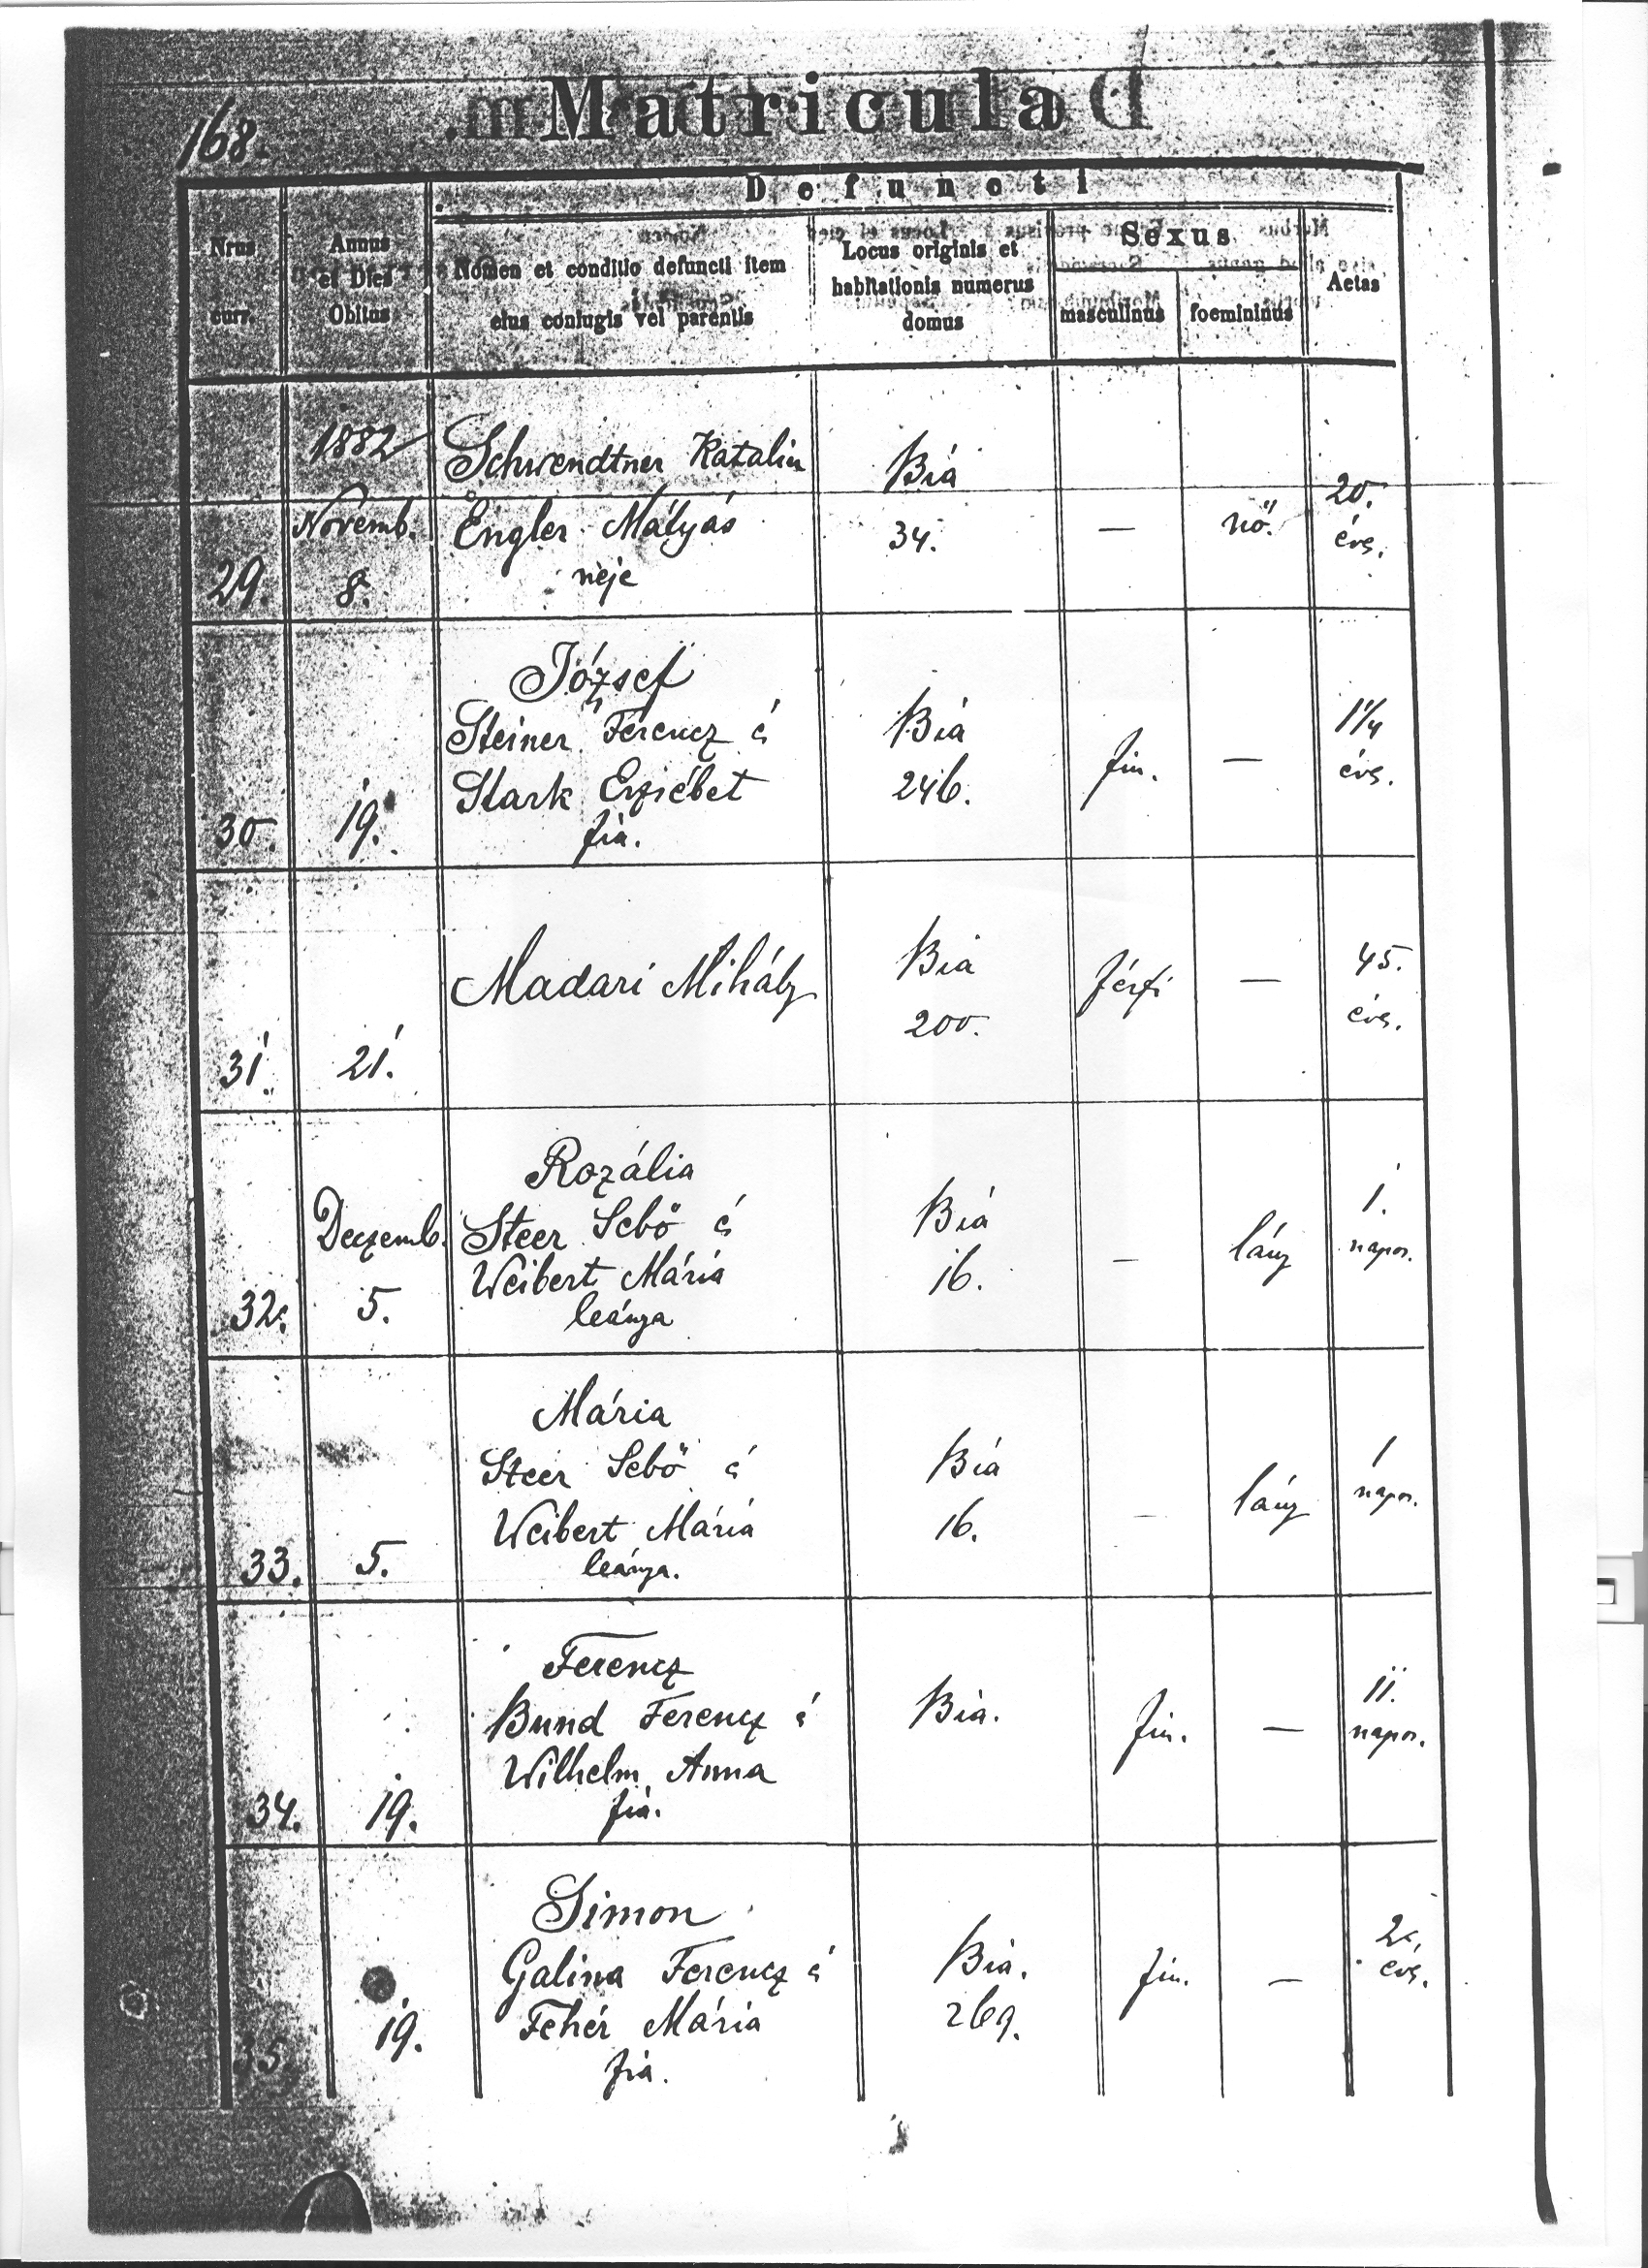 168.
Matricula
Defuncti
Nrus
curr.
Annus
et Dies
Obitus
Nomen et conditio defuncti item
eius coniugis vel parentis
Locus originis et
habitationis numerus
domus
Sexus
masculinus
foemininus
Aetas
29.
1882
Novemb.
8.
Schwendtner Katalin
Engler Mátyás
neje
Bia
34.
—
nő.
20.
éves.
30.
19.
József
Steiner Ferencz é
Stark Erzsébet
fia.
Bia
246.
fiu.
—
1 1/4
éves.
31.
21.
Madari Mihály
Bia
200.
férfi
—
45.
éves.
32.
Deczemb.
5.
Rozália
Steer Sebő é
Weibert Mária
leánya
Bia
16.
—
lány
1.
napos.
33.
5.
Mária
Steer Sebő é
Weibert Mária
leánya.
Bia
16.
—
lány
1
napos.
34.
19.
Ferencz
Bund Ferencz é
Wilhelm Anna
fia.
Bia.
fiu.
—
11.
napos.
35.
19.
Simon
Galina Ferencz é
Fehér Mária
fia.
Bia.
269.
fiu.
—
2.
éves.